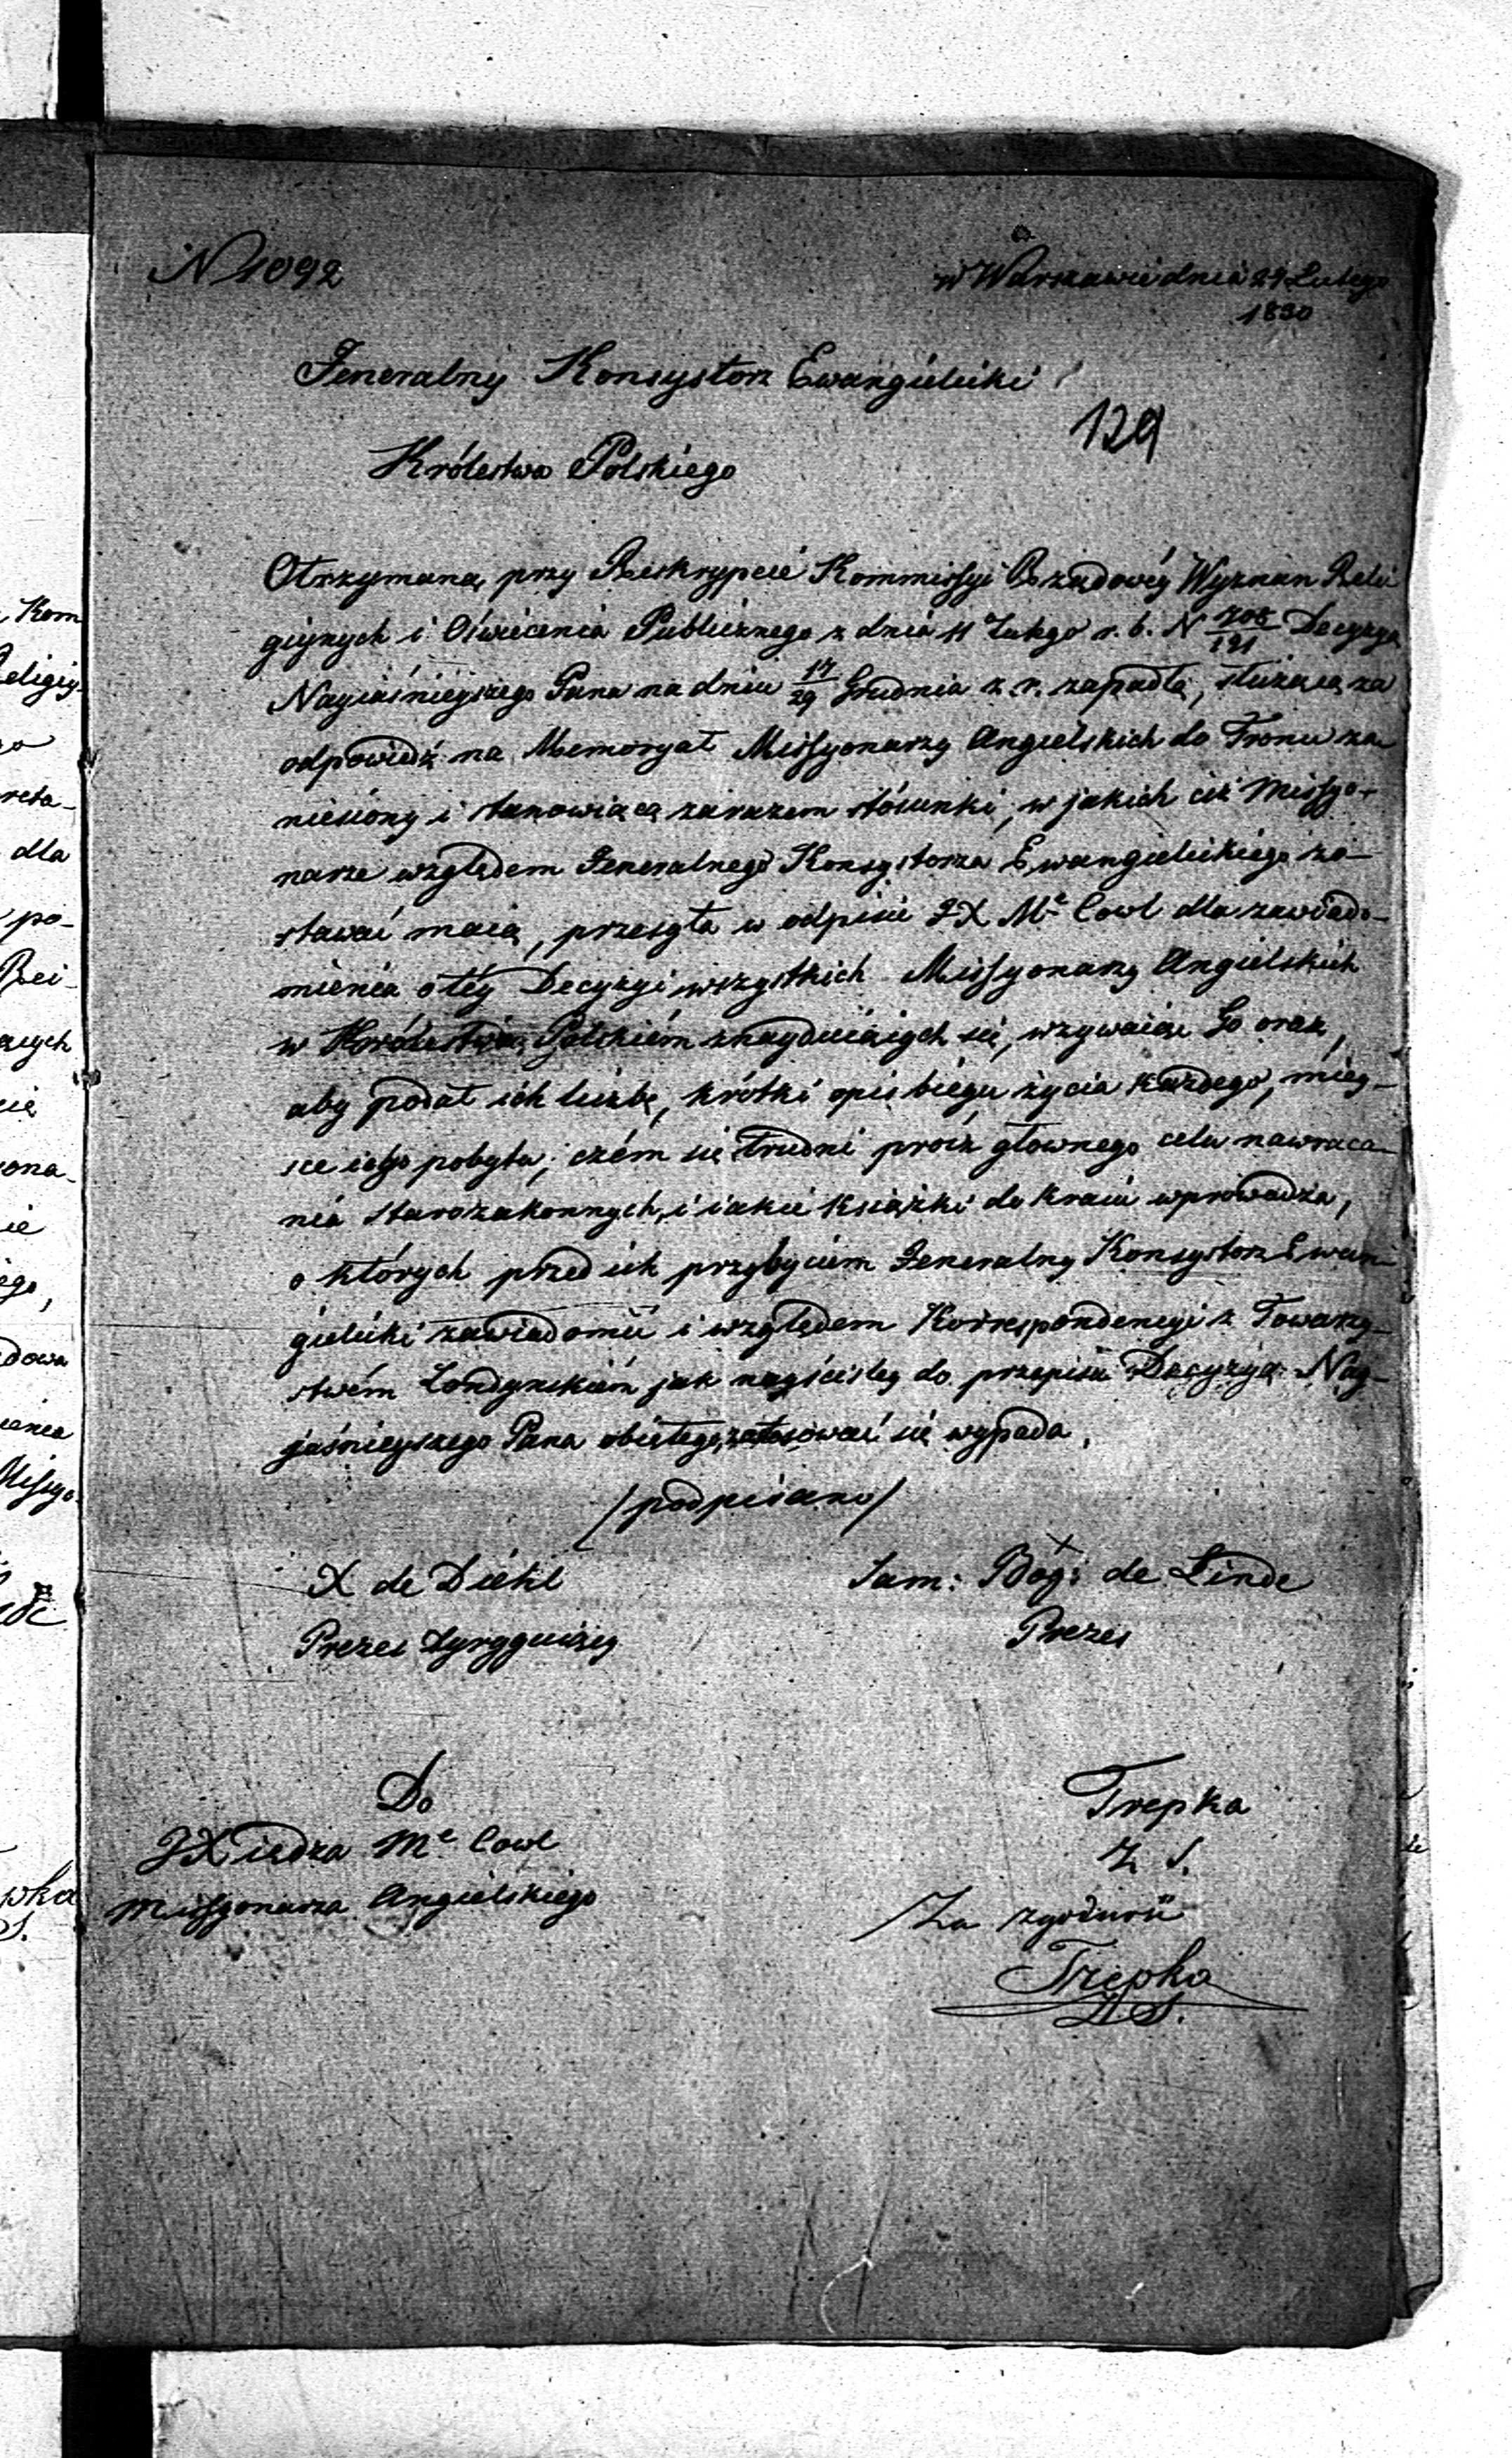 N 1092
w Warszawie dnia 24 Lutego
1830
Jeneralny Konsystorz Ewangielicki
129
Królestwa Polskiego
Otrzymaną przy Reskrypcie Kommissyi Rządowéy Wyznań Reli
giynych i Oświecenia Publicznego z dnia 11 Lutego r. b. N Decyzyą
Nayiaśnieyszego Pana na dniu 17/29 Grudnia z. r. zapadłą, służącą za
odpowiedź na Memoryał Missyonarzy Angielskich do Tronu za-
niesiony i stanowiącą zarazem stósunki, w jakich ciż Missyo-
narze względem Jeneralnego Konsystorza Ewangielickiego zo-
stawać maią, przesyła w odpisie JX Mc Cowl dla zawiado-
mienia o téy Decyzyi wszystkich Missyonarzy Angielskich
w Królestwie Polskiém znayduiących się, wzywaiąc Go oraz,
aby podał ich liczbę, krótki opis biegu życia każdego, miey-
sce iego pobytu, czém się trudni prócz głównego celu nawraca-
nia starozakonnych, i iakie książki do kraiu wprowadza,
o których przed ich przybyciem Jeneralny Konsystorz Ewan-
gielicki zawiadomić i względem Korrespondencyi z Towarzy-
stwém Londyńskiém jak nayściśléy do przepisu Decyzyą Nay-
jaśnieyszego Pana obiętego, zastosować się wypada.
/podpisano/
X de Diehl Sam: Bog: de Linde
Prezes Prezes
Do
JXiędza Mc Cowl
Missyonarza Angielskiego
Trepka
Z S.
/Za zgodność
Trepka
Z S.